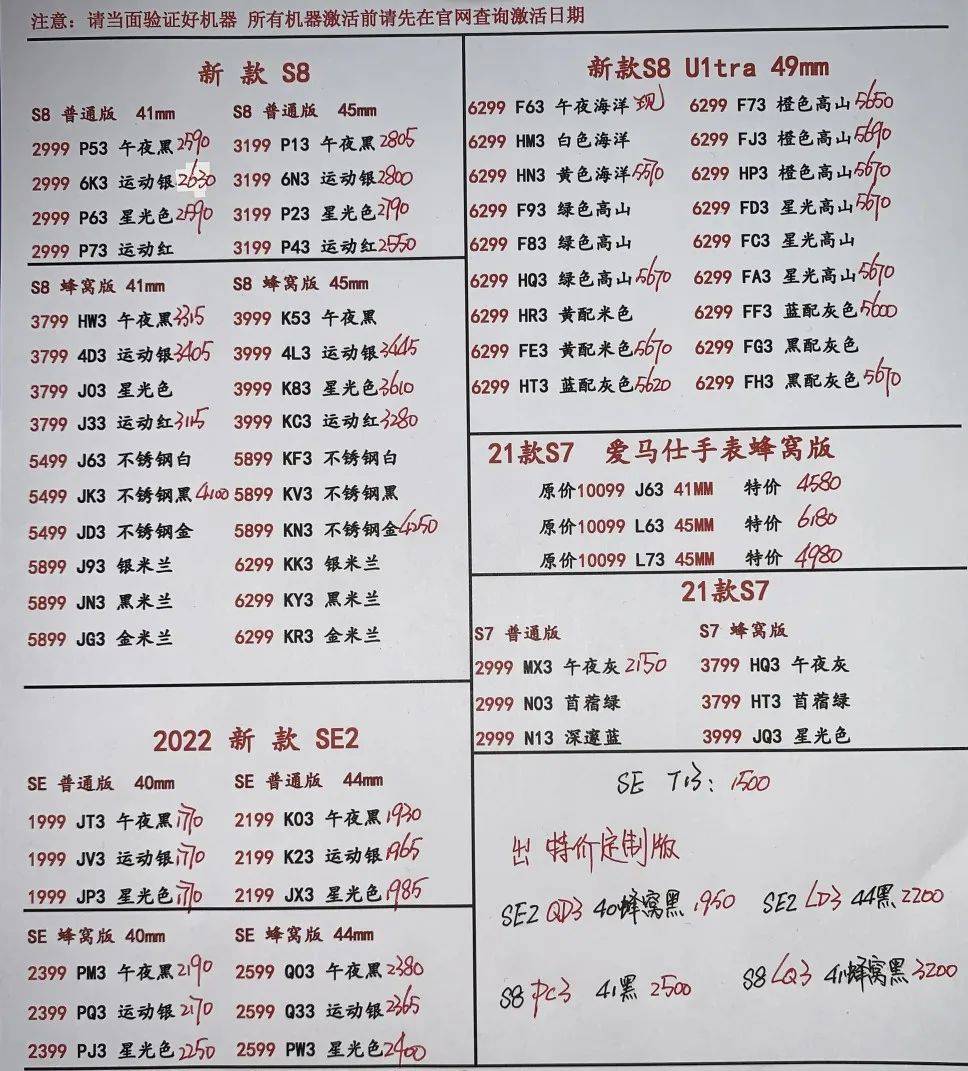 注意：请当面验证好机器 所有机器激活前请先在官网查询激活日期
新 款 S8
S8 普通版 41mm
2999 P53 午夜黑 2590
2999 6K3 运动银 2630
2999 P63 星光色 2590
2999 P73 运动红
S8 普通版 45mm
3199 P13 午夜黑 2805
3199 6N3 运动银 2800
3199 P23 星光色 2790
3199 P43 运动红 2550
S8 蜂窝版 41mm
3799 HW3 午夜黑 3315
3799 4D3 运动银 3405
3799 J03 星光色
3799 J33 运动红 3115
5499 J63 不锈钢白
5499 JK3 不锈钢黑 4100
5499 JD3 不锈钢金
5899 J93 银米兰
5899 JN3 黑米兰
5899 JG3 金米兰
S8 蜂窝版 45mm
3999 K53 午夜黑
3999 4L3 运动银 3445
3999 K83 星光色 3610
3999 KC3 运动红 3280
5899 KF3 不锈钢白
5899 KV3 不锈钢黑
5899 KN3 不锈钢金
6299 KK3 银米兰
6299 KY3 黑米兰
6299 KR3 金米兰
2022 新 款 SE2
SE 普通版 40mm
1999 JT3 午夜黑 1770
1999 JV3 运动银 1770
1999 JP3 星光色 1770
SE 普通版 44mm
2199 K03 午夜黑 1930
2199 K23 运动银 1965
2199 JX3 星光色 1985
SE 蜂窝版 40mm
2399 PM3 午夜黑 2190
2399 PQ3 运动银 2170
2399 PJ3 星光色 2250
SE 蜂窝版 44mm
2599 Q03 午夜黑 2380
2599 Q33 运动银 2365
2599 PW3 星光色 2400
新款S8 U1tra 49mm
6299 F63 午夜海洋 现
6299 HM3 白色海洋
6299 HN3 黄色海洋 5570
6299 F93 绿色高山
6299 F83 绿色高山
6299 HQ3 绿色高山 5670
6299 HR3 黄配米色
6299 FE3 黄配米色 5670
6299 HT3 蓝配灰色 5620
6299 F73 橙色高山 5650
6299 FJ3 橙色高山 5690
6299 HP3 橙色高山 5670
6299 FD3 星光高山 5670
6299 FC3 星光高山
6299 FA3 星光高山 5670
6299 FF3 蓝配灰色 5600
6299 FG3 黑配灰色
6299 FH3 黑配灰色 5670
21款S7 爱马仕手表蜂窝版
原价10099 J63 41MM 特价 4580
原价10099 L63 45MM 特价 6180
原价10099 L73 45MM 特价 4980
21款S7
S7 普通版
2999 MX3 午夜灰 2150
2999 N03 苜蓿绿
2999 N13 深邃蓝
S7 蜂窝版
3799 HQ3 午夜灰
3799 HT3 苜蓿绿
3999 JQ3 星光色
SE T13: 1500
出 特价定制版
SE2 QD3 40蜂窝黑 1950
SE2 LD3 44黑 2200
S8 PC3 41黑 2500
S8 LQ3 41蜂窝黑 3200